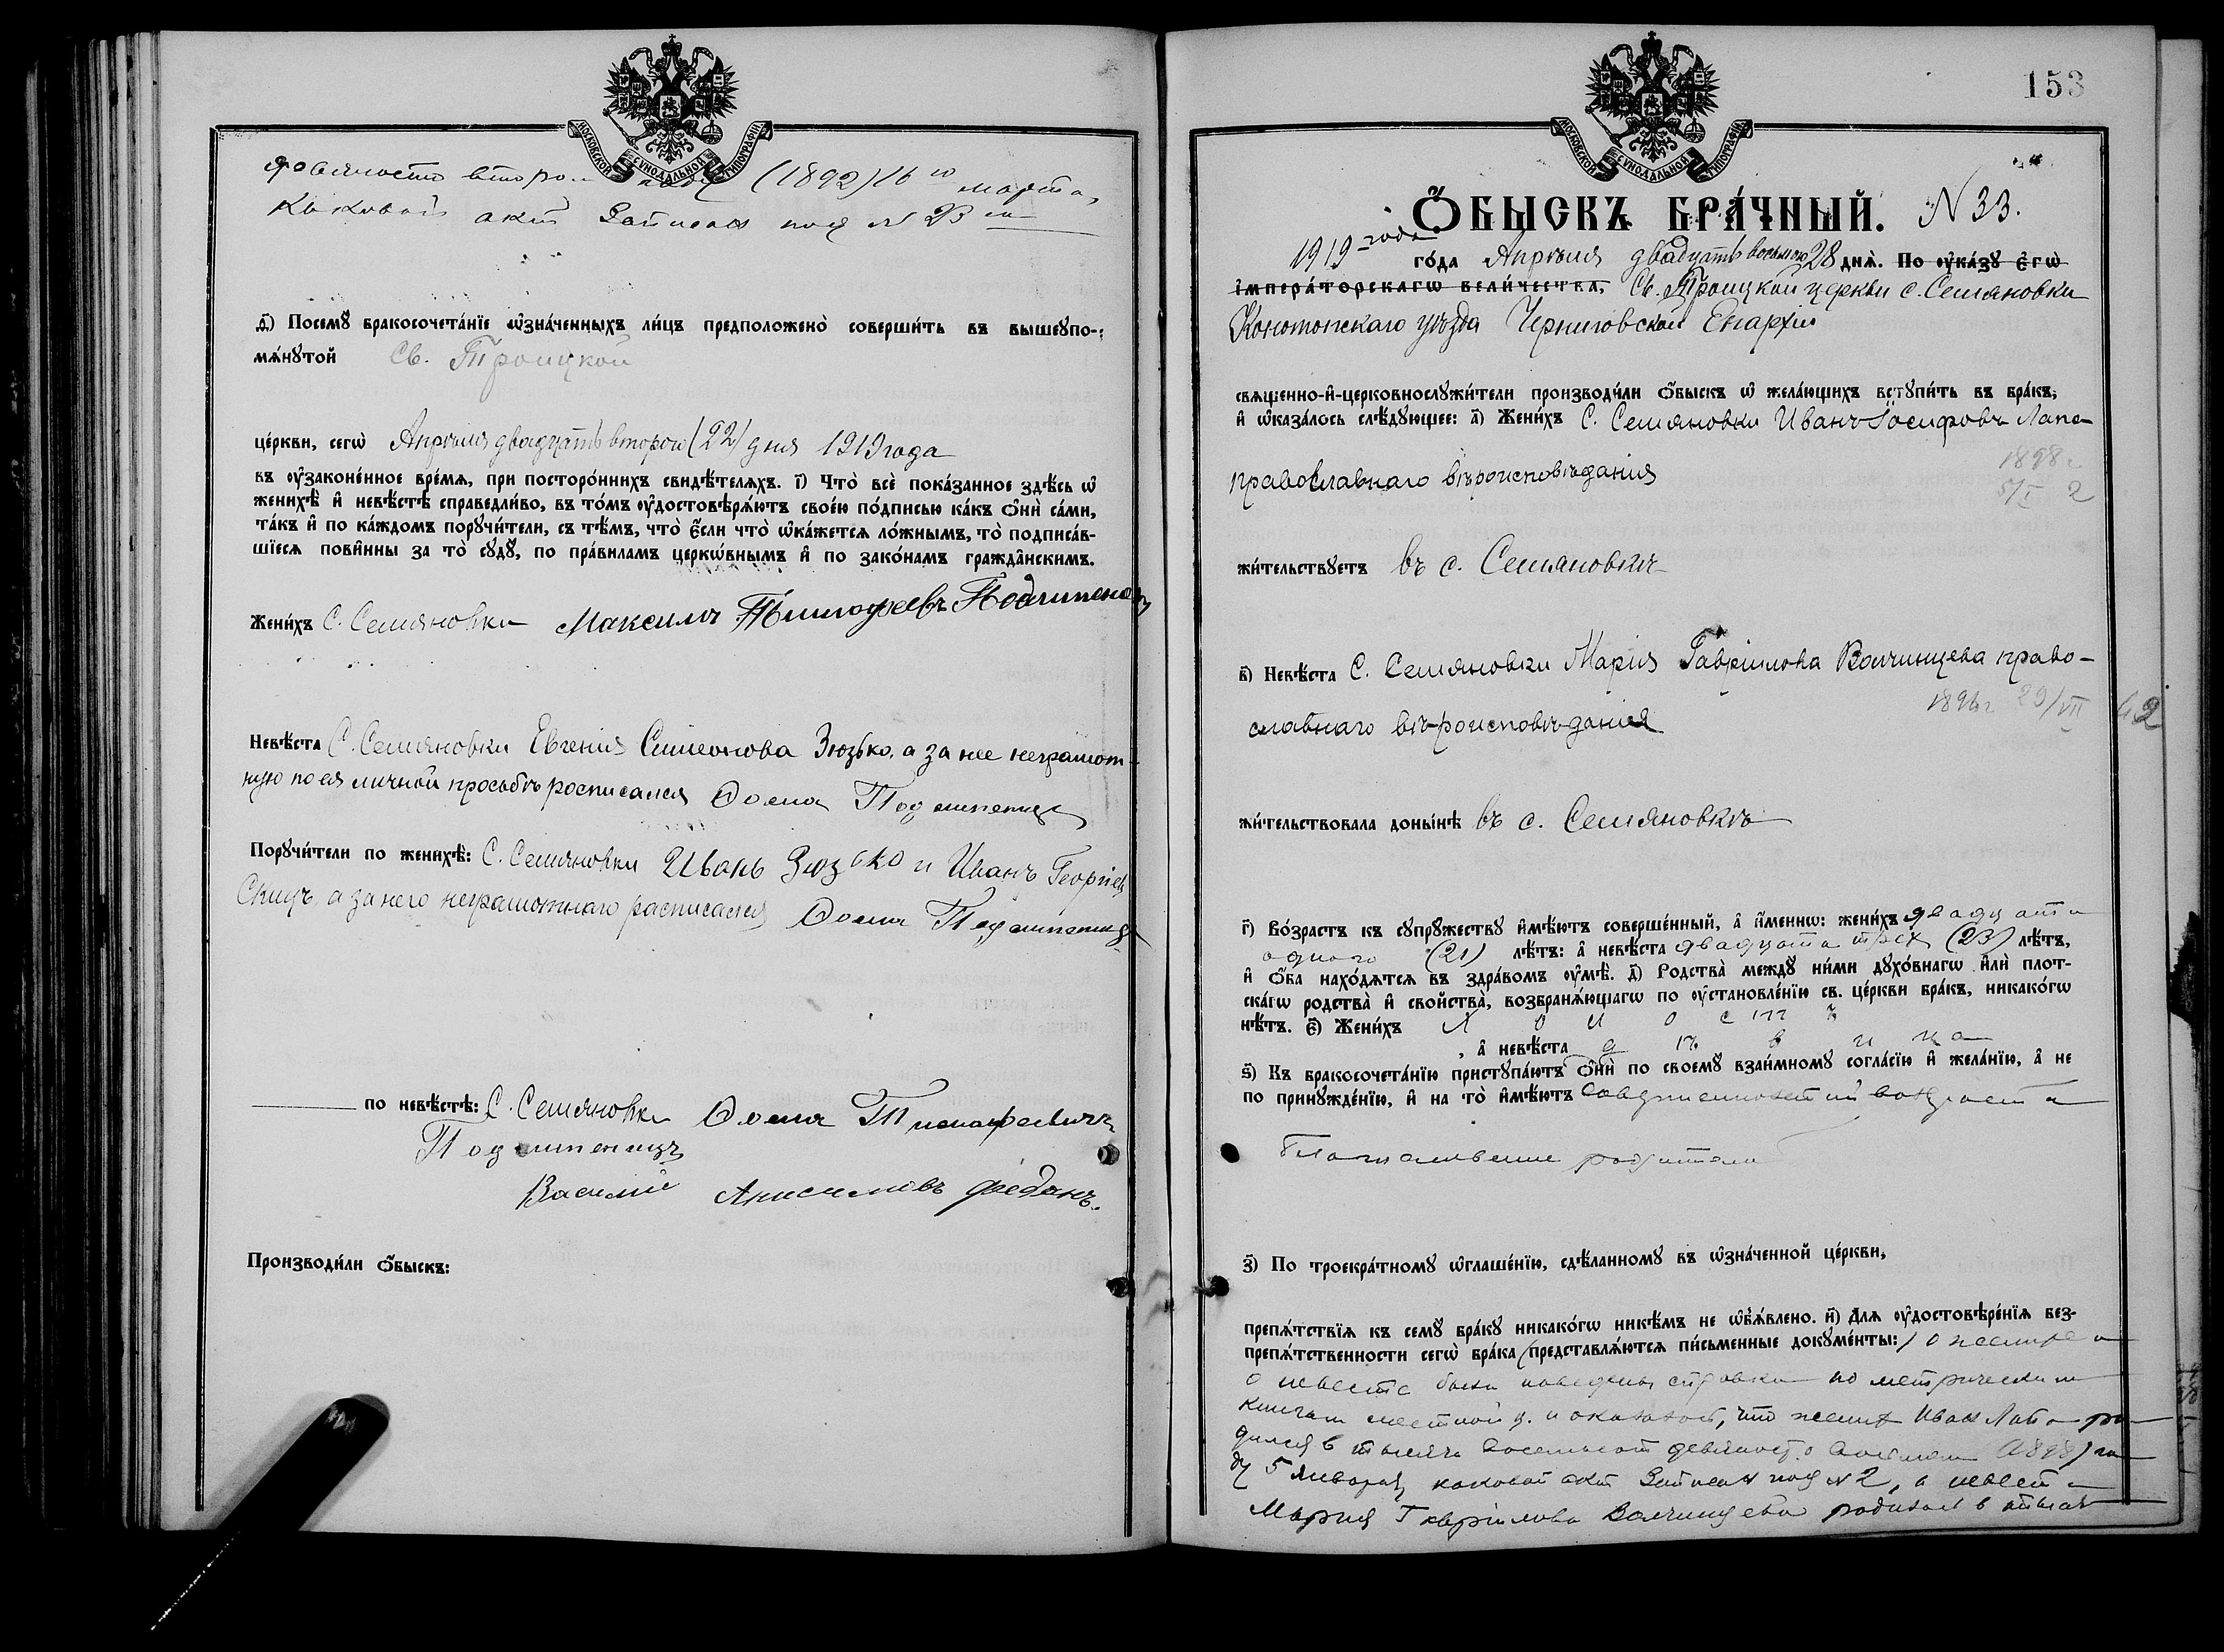 МОСКОВСКОЙ СУНОДАЛЬНОЙ ТИПОГРАФІИ
девяносто втором году (1892) 16го марта,
каковой акт записан под № 23 м
д҃і) Посемꙋ бракосочета́нїе ѡ҆зна́ченныхъ ли́цъ предположено̀ соверши́ть въ вышеꙋпо-
мѧ́нꙋтой Св. Троицкой
це́ркви, сегѡ̀ Апрѣля двадцать второго (22) дня 1919 года
въ ᲂу҆законе́нное вре́мѧ, при посторо́ннихъ свидѣ́телѧхъ. і҃) Что̀ всѐ пока́занное здѣ́сь ѡ҆
женихѣ̀ и҆ невѣ́стѣ справедли́во, въ то́мъ ᲂу҆достовѣрѧ́ютъ свое́ю по́дписью ка́къ ѻ҆нѝ са́ми,
та́къ и҆ по ка́ждомъ порꙋчи́тели, съ тѣ́мъ, что̀ є҆́сли что̀ ѡ҆ка́жетсѧ ло́жнымъ, то̀ подписа́в-
шїесѧ пови́нны за то̀ сꙋдꙋ̀, по пра́виламъ церко́внымъ и҆ по зако́намъ гражда́нскимъ.
Жени́хъ С. Семяновки Максимъ Тимофеевъ Подлипенецъ
Невѣ́ста С. Семяновки Евгенія Симеонова Зюзько, а за нее неграмот-
ную по ея личной просьбѣ росписался Ѳома Подлипенецъ
Порꙋчи́тели по женихѣ̀: С. Семяновки Иванъ Зюзько и Иванъ Георгіев
а за него неграмотнаго расписался Ѳома Подлипенецъ
по невѣ́стѣ: С. Семяновки Ѳома Тимофеевичъ
Подлипенецъ
Василій Анисимовъ Федянъ.
Производи́ли ѻ҆́быскъ:
153
МОСКОВСКОЙ СУНОДАЛЬНОЙ ТИПОГРАФІИ
Ѻ҆́БЫСКЪ БРА́ЧНЫЙ. № 33.
1919 года
го́да Апрѣля двадцать восьмого 28 днѧ̀. По ᲂу҆ка́зꙋ є҆гѡ̀
і҆мпера́торскагѡ вели́чества, Св. Троицкой церкви с. Семяновки
Конотопскаго уѣзда Черниговской Епархіи
свѧще́нно-и҆-церковнослꙋжи́тели производи́ли ѻ҆́быскъ ѡ҆ жела́ющихъ встꙋпи́ть въ бра́къ,
и҆ ѡ҆каза́лось слѣ́дꙋющее: а҃) Жени́хъ С. Семяновки Иванъ Іосифовъ Лапа
1898 г.
православнаго вѣроисповѣданія
5/I 2
жи́тельствꙋетъ въ с. Семяновкѣ
в҃) Невѣ́ста С. Семяновки Марія Гавріилова Волчинцева право-
29/VII 42
славнаго вѣроисповѣданія
жи́тельствовала донынѣ въ с. Семяновкѣ
г҃) Во́зрастъ къ сꙋпрꙋ́жествꙋ и҆мѣ́ютъ соверше́нный, а҆ и҆́меннѡ: жени́хъ двадцати
одного (21) лѣ́тъ: а҆ невѣ́ста двадцати трех (23) лѣ́тъ,
и҆ ѻ҆́ба нахо́дѧтсѧ въ здра́вомъ ᲂу҆мѣ̀. д҃) Родства̀ междꙋ ни́ми дꙋхо́внагѡ и҆лѝ плот-
ска́гѡ родства̀ и҆ сво́йства̀, возбранѧ́ющагѡ по ᲂу҆становле́нїю св. це́ркви бра́къ, никако́гѡ
нѣ́тъ. є҃) Жени́хъ холостъ
, а҆ невѣ́ста дѣвица
ѕ҃) Къ бракосочета́нїю пристꙋпа́ютъ ѻ҆нѝ по своемꙋ̀ взаи́мномꙋ согла́сїю и҆ жела́нїю, а҆ не
по принꙋжде́нїю, и҆ на то̀ и҆мѣ́ютъ совершеннолетний возраст и
благословение родителей
з҃) По троекра́тномꙋ ѡ҆глаше́нїю, сдѣ́ланномꙋ въ ѡ҆зна́ченной це́ркви,
препѧ́тствїѧ къ семꙋ̀ бра́кꙋ никако́гѡ никѣ́мъ не ѡ҆б̾ѧ́влено. и҃) Длѧ ᲂу҆достовѣре́нїѧ без-
препѧ́тственности сегѡ̀ бра́ка представлѧ́ютсѧ пи́сьменные докꙋме́нты: о женихе и
о невесте были наведены справки по метрическим
книгам местной ц. и оказалось, что жених Иван Лапа ро-
дился в тысяча восемьсот девяносто восьмом (1898) го-
ду 5 января, каковой акт записан под № 2, а невеста
Мария Гавріилова Волчинцева родилась в тысяч